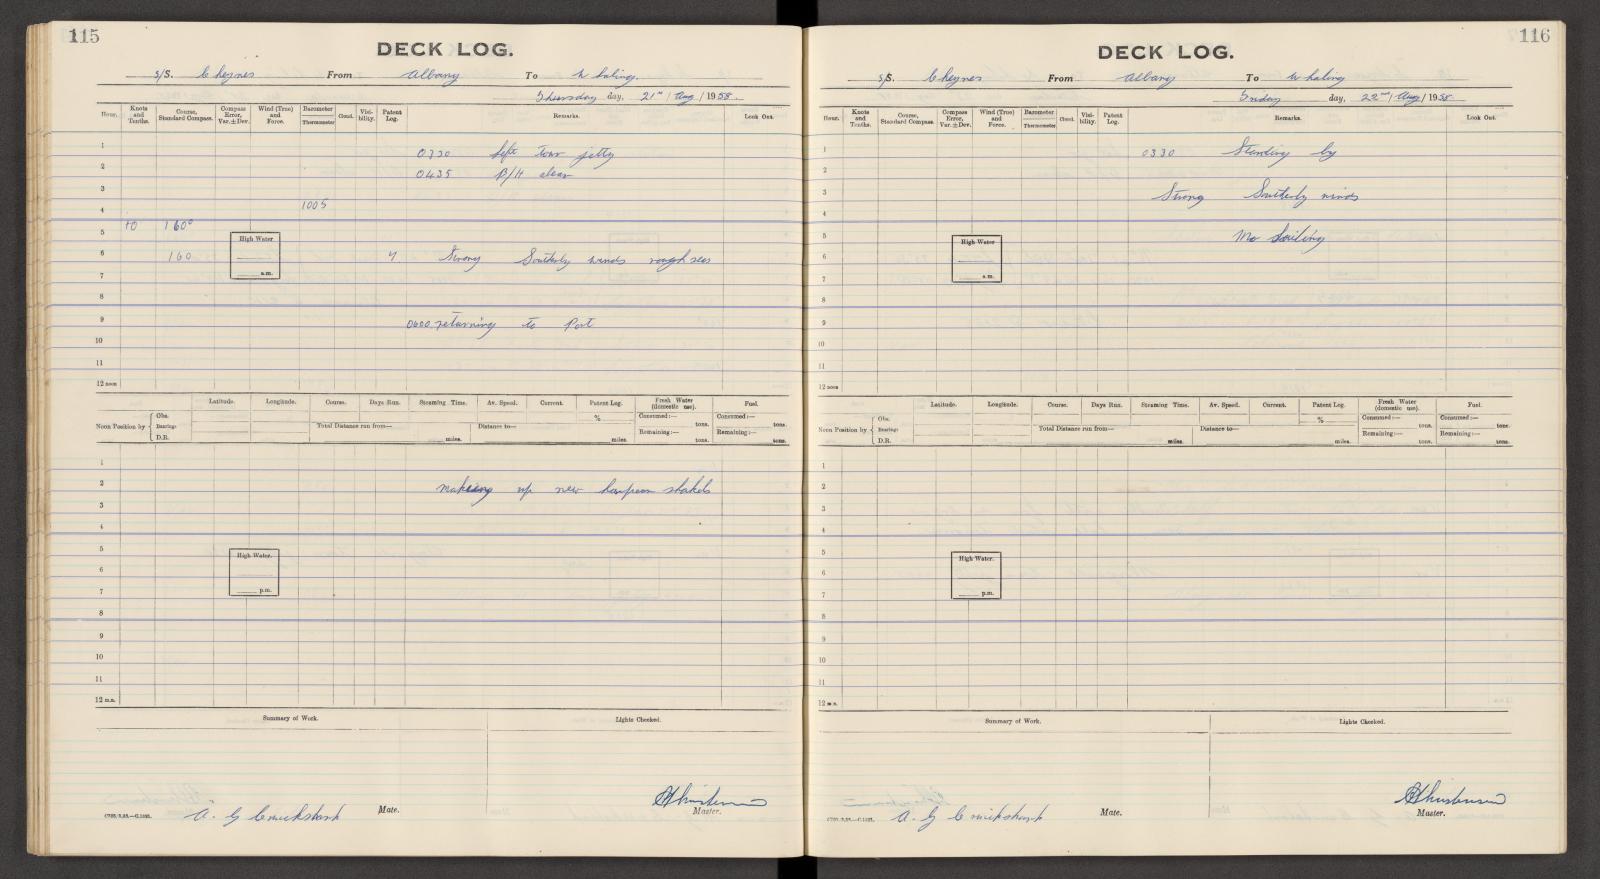 115
DECK LOG.
S/S. Cheynes From Albany To Whaling.
Thursday day, 21st / Aug / 1958.
Hour. Knots and Tenths. Course, Standard Compass. Compass Error, Var. ± Dev. Wind (True) and Force. Barometer Thermometer Cloud. Visi- bility. Patent Log. Remarks. Look Out.
1 0330 left town jetty
2 0435 B/H clear
3
4 1005
10 160°
5 High Water
6 160 7 Strong Southerly winds rough seas
7 a.m.
8
9 0600 returning to Port
10
11
12 noon
Latitude. Longitude. Course. Days Run. Steaming Time. Av. Speed. Current. Patent Log. Fresh Water (domestic use). Fuel.
Noon Position by Obs. Bearing: D.R. Total Distance run from— miles. Distance to— miles. % Consumed :— tons. Remaining :— tons. Consumed :— tons. Remaining :— tons.
1
2 making up new harpoon shakels
3
4
5 High Water.
6
7 p.m.
8
9
10
11
12 m.n.
Summary of Work. Lights Checked.
A. G Cruickshank Mate. Christensen Master.
116
DECK LOG.
S/S. Cheynes From Albany To Whaling
Friday day, 22nd / Aug / 1958
Hour. Knots and Tenths. Course, Standard Compass. Compass Error, Var. ± Dev. Wind (True) and Force. Barometer Thermometer Cloud. Visi- bility. Patent Log. Remarks. Look Out.
1 0330 Standing by
2
3 Strong Southerly winds
4
5 High Water No Sailing
6
7 a.m.
8
9
10
11
12 noon
Latitude. Longitude. Course. Days Run. Steaming Time. Av. Speed. Current. Patent Log. Fresh Water (domestic use). Fuel.
Noon Position by Obs. Bearing: D.R. Total Distance run from— miles. Distance to— miles. % Consumed :— tons. Remaining :— tons. Consumed :— tons. Remaining :— tons.
1
2
3
4
5 High Water.
6
7 p.m.
8
9
10
11
12 m.n.
Summary of Work. Lights Checked.
A. G Cruickshank Mate. Christensen Master.